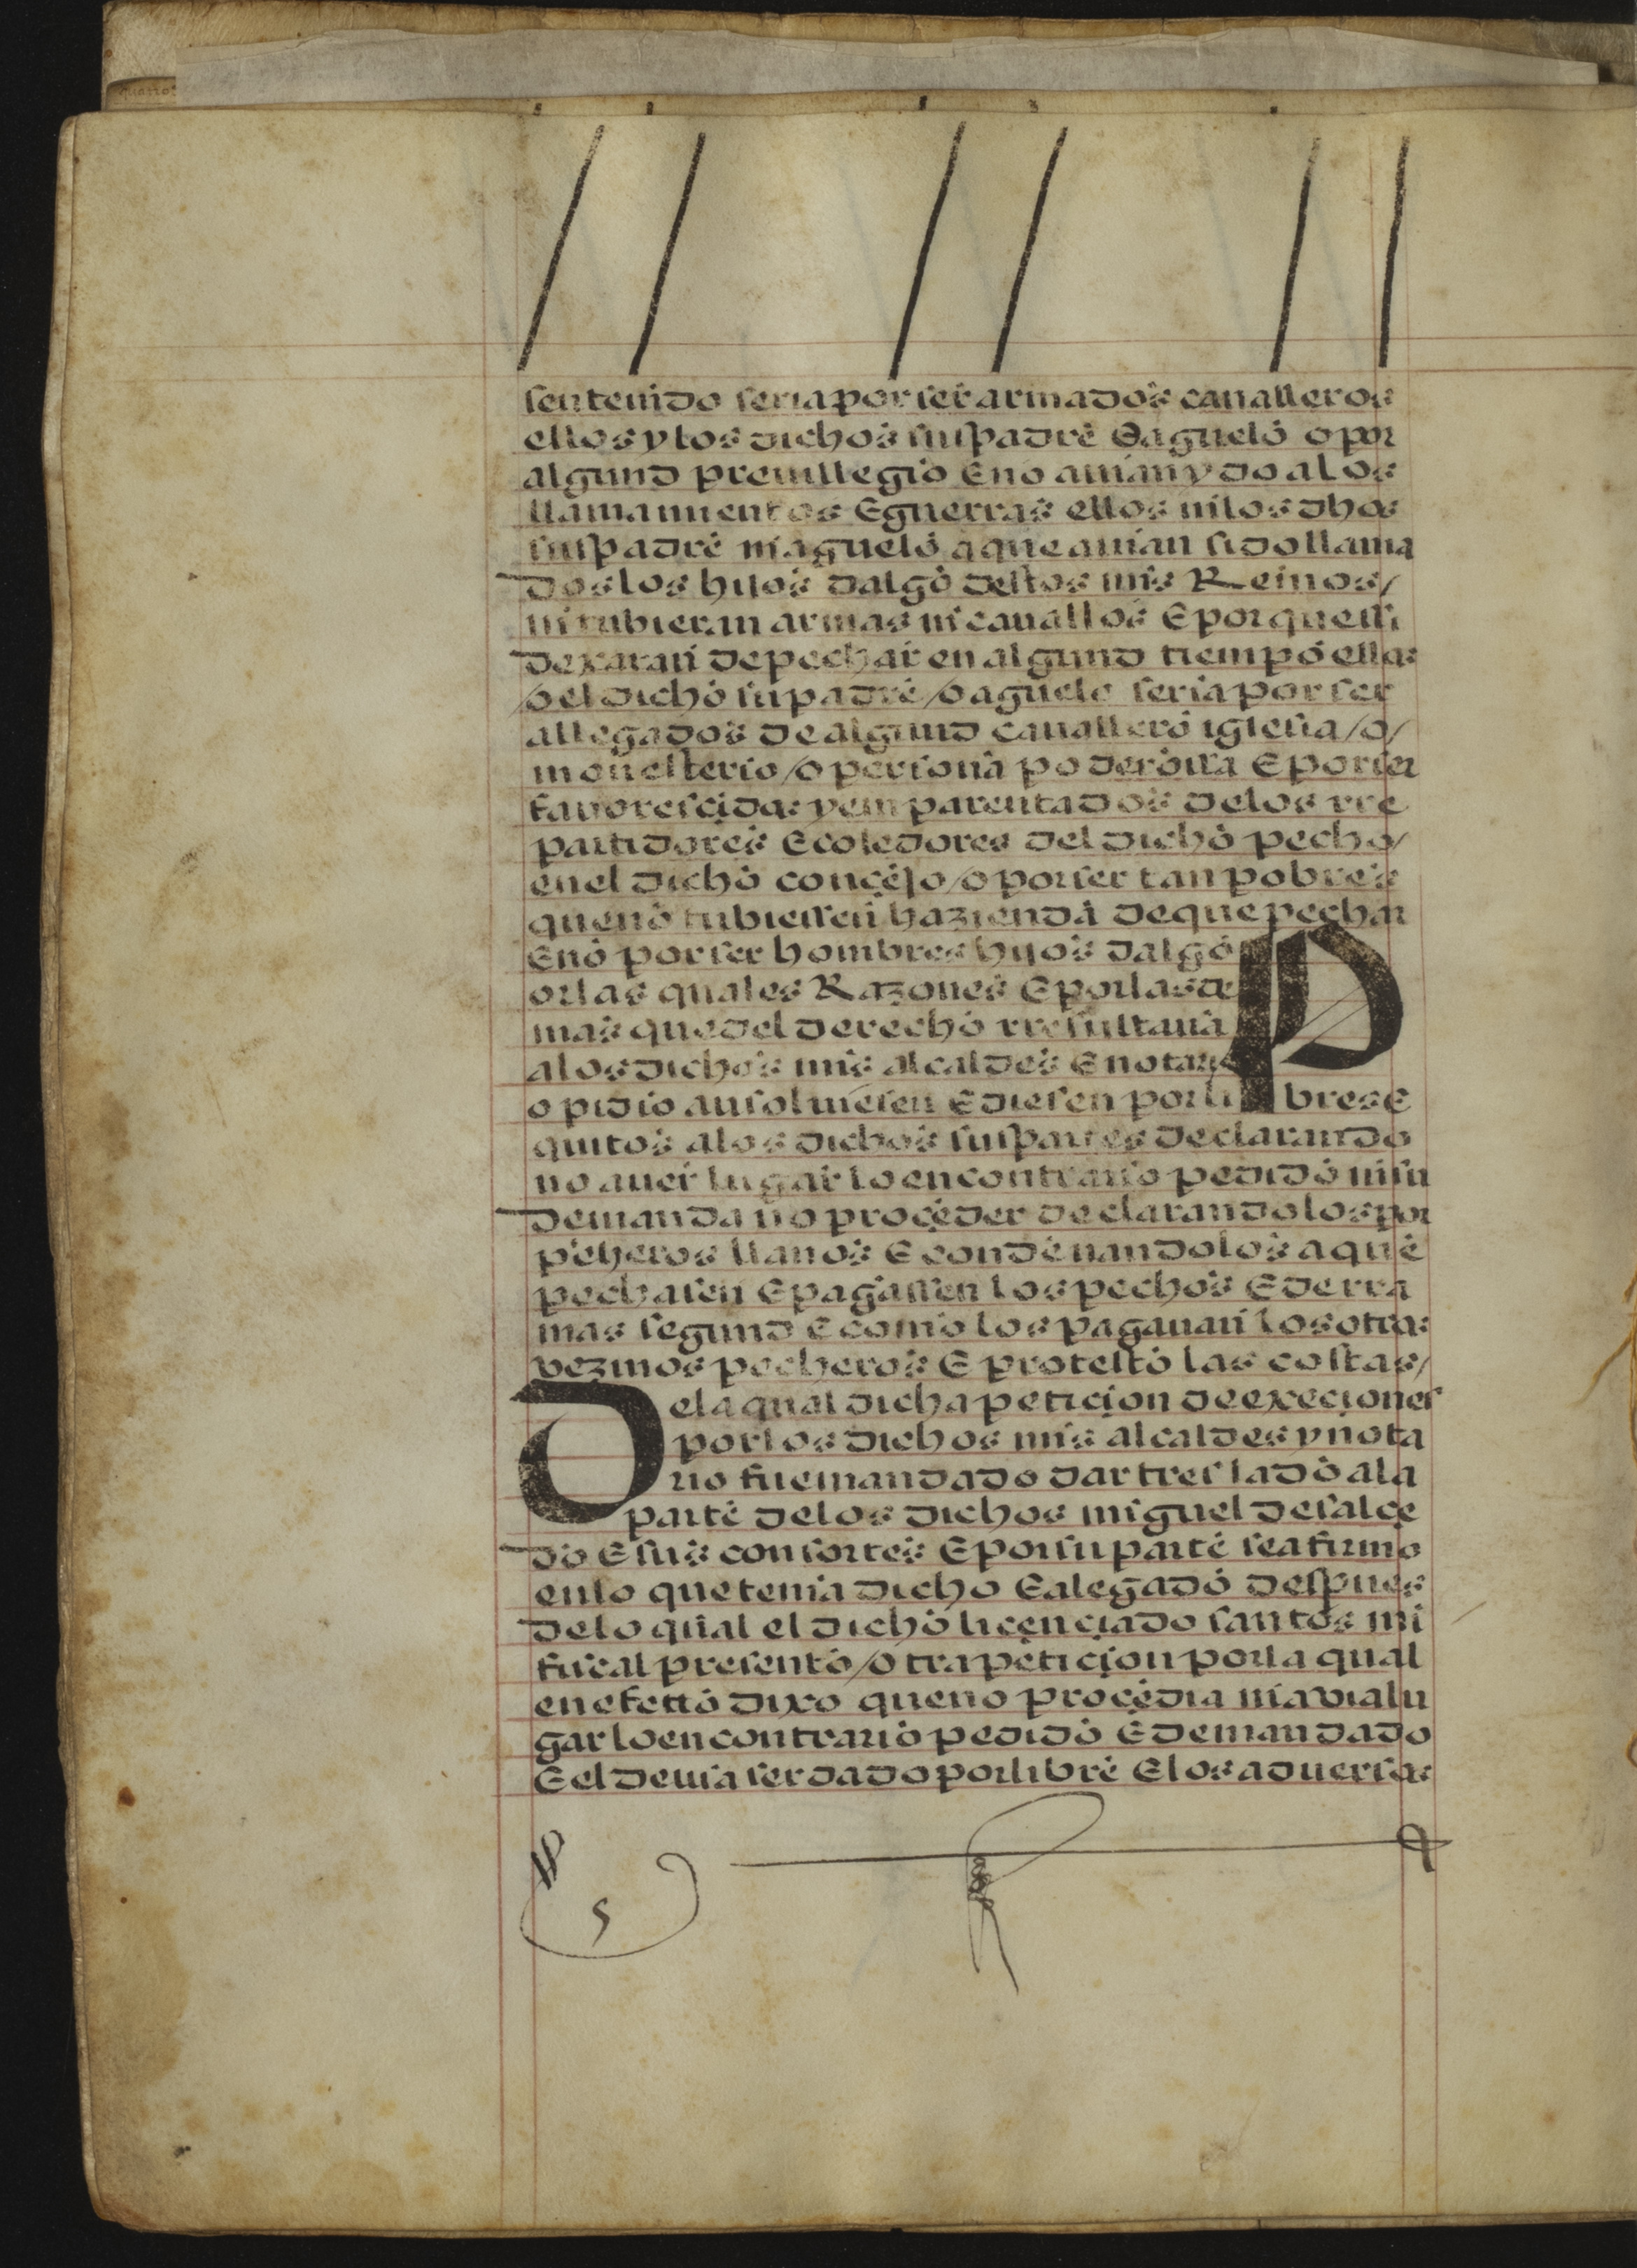 sentenido seria por ser armados cavalleros
ellos y los dichos su padre E aguelo o por
algund previllegio E no avian ydo a los
llamamientos E guerras ellos ni los dhos
su padre ni aguelo a que avian sido llama
dos los hijos dalgo destos mis Reinos /
ni tubieran armas ni cavallos E porque si
dexaran de pechar en algund tiempo ellos
/o el dicho su padre /o aguelo seria por ser
allegados de algund cavallero iglesia /o/
monesterio /o persona poderossa E por ser
favorescidos y emparentados de los rre
partidores E cojedores del dicho pecho /
en el dicho conçejo /o por ser tan pobres
que no tubiessen hazienda de que pechar
E no por ser hombres hijos dalgo P
or las quales Razones E por las de
mas que del derecho rresultava
a los dichos mis alcaldes E notario
pidio ausolviesen E diesen por li bres E
quitos a los dichos sus partes declarando
no aver lugar lo en contrario pedido ni su
demanda no proçeder declarandolos por
pecheros llanos E condenandolos a que
pechasen E pagassen los pechos E derra
mas segund E como los pagavan los otros
vezinos pecheros E protesto las costas /
De la qual dicha peticion de exeçiones
por los dichos mis alcaldes y nota
rio fue mandado dar treslado a la
parte de los dichos miguel de salçe
do E sus consortes E por su parte se afirmo
en lo que tenia dicho E alegado despues
de lo qual el dicho liçençiado santos mi
fiscal presento /o tra petiçion por la qual
en efetto dixo que no proçedia ni avia lu
gar lo en contrario pedido E demandado
E el devia ser dado por libre E los adversos